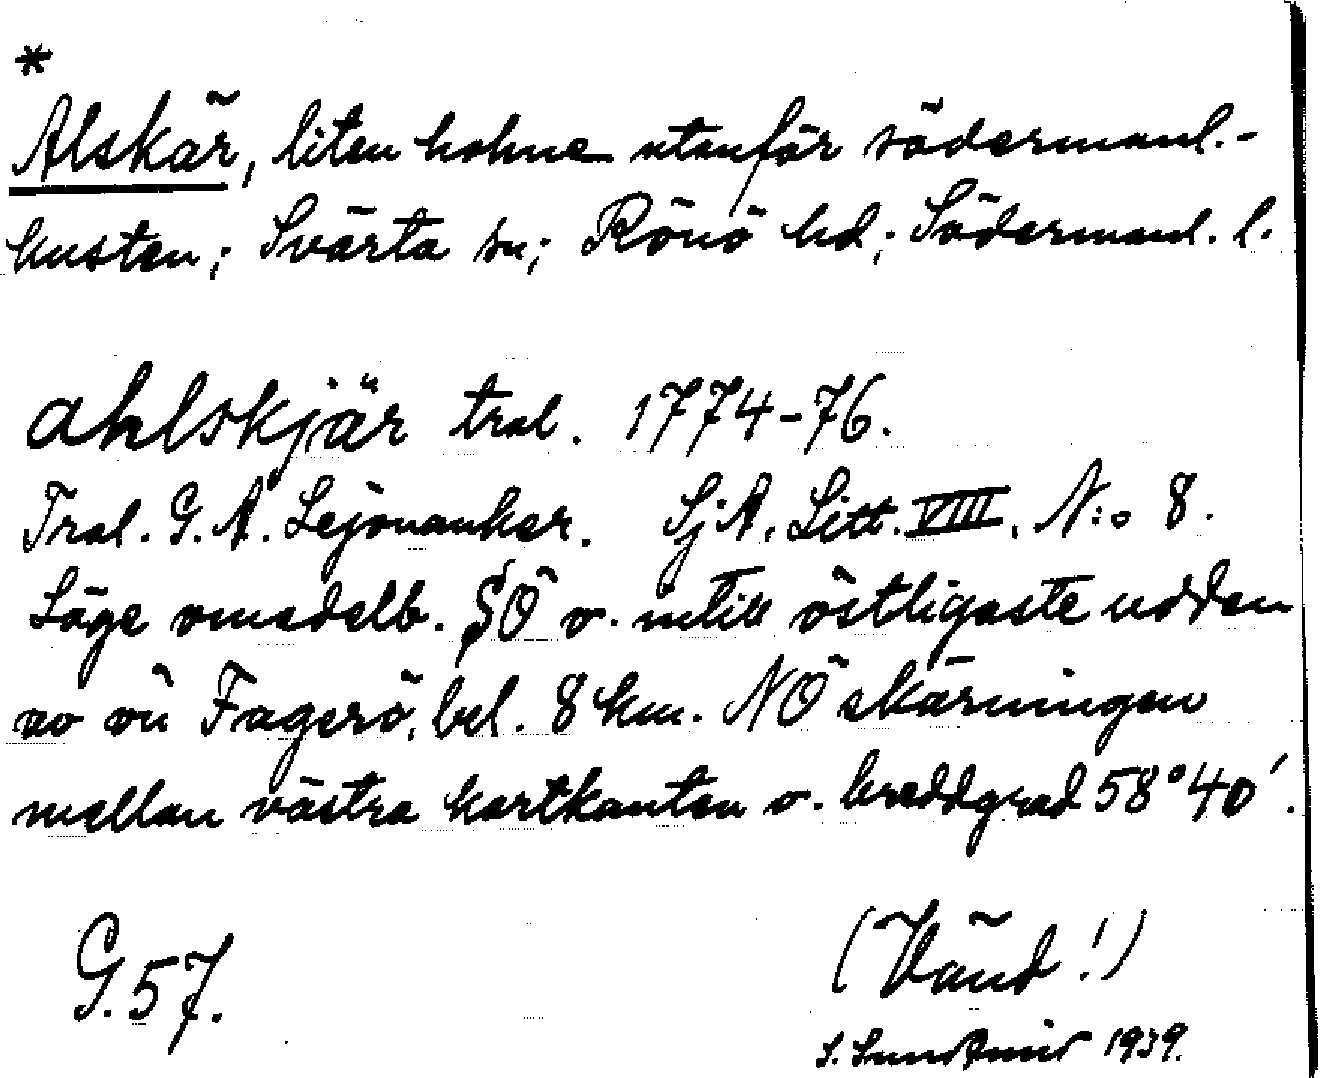 *
Alskär, liten holme utanför södermanl.-
kusten; Svärta sn; Rönö hd; Södermanl. l.
ahlskjär tral. 1774-76.
Tral. G. A. Lejonanker. SjA. Litt. VIII. N:o 8.
Läge omedelb. SÖ o. intill östligaste udden
av ön Fagerö, bel. 8 km. NÖ skärningen
mellan västra kartkanten o. breddgrad 58°40'.
G. 57.
(Vänd!)
S. 1939.